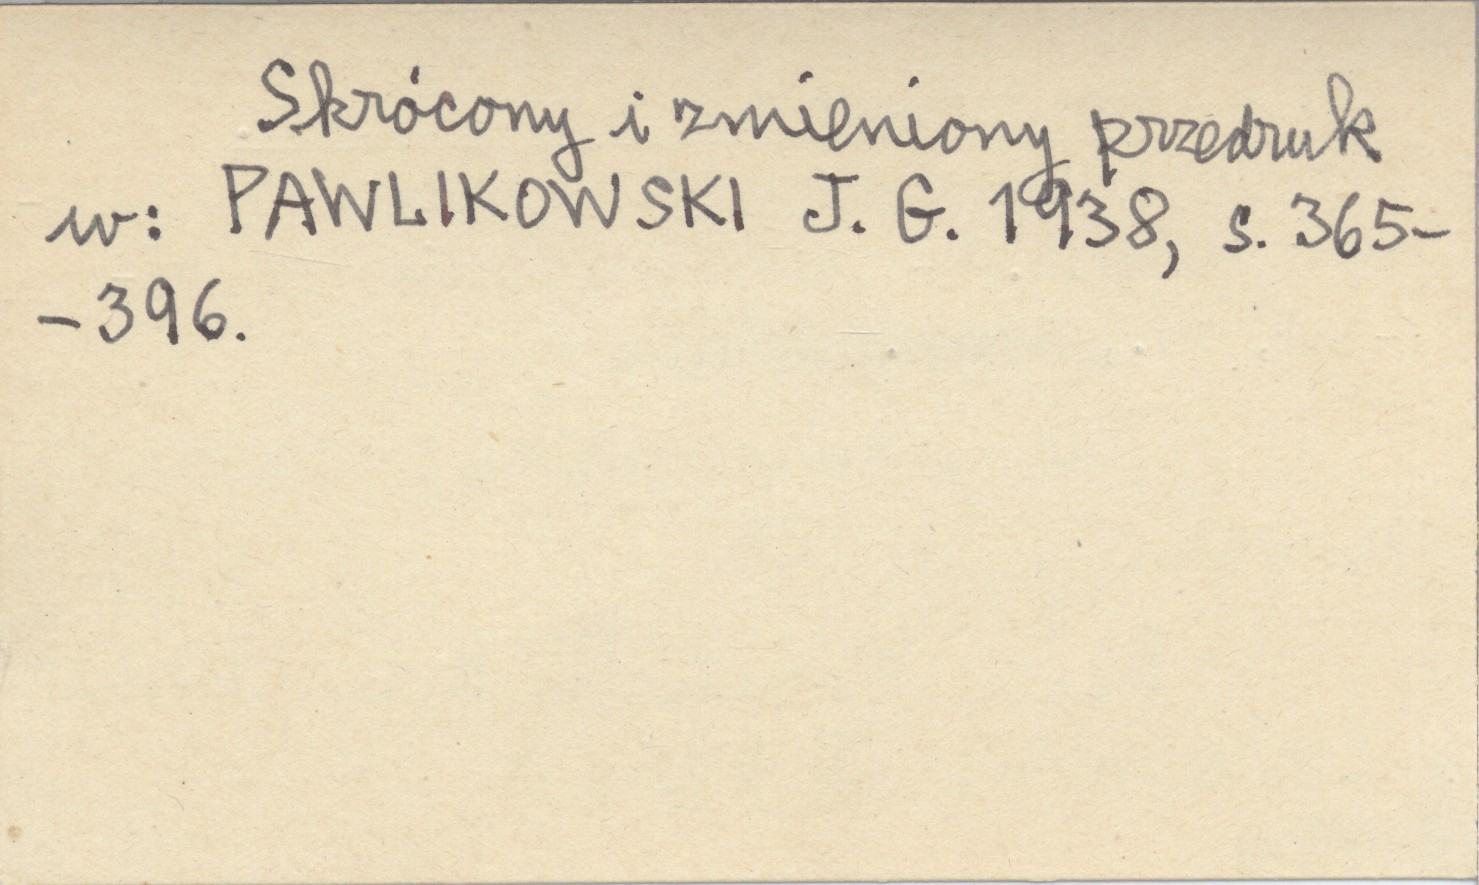 Skrócony i zmieniony przedruk
w: PAWLIKOWSKI J. G. 1938, s. 365-
-396.